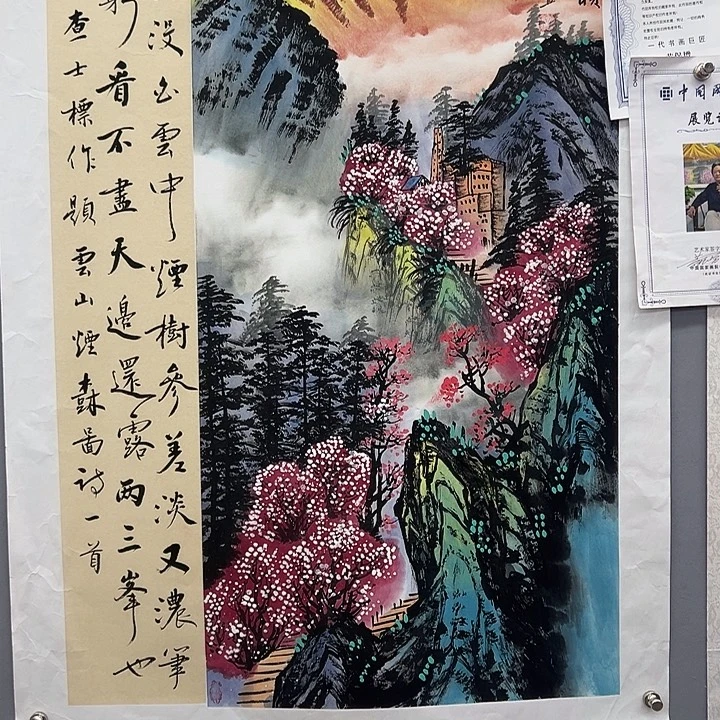 没白雲中煙樹參差淡又濃筆
看不盡天邊還露兩三峯也
查士標作題雲山煙森圖詩一首
一代书画巨匠
中国国
展览
艺术家签字